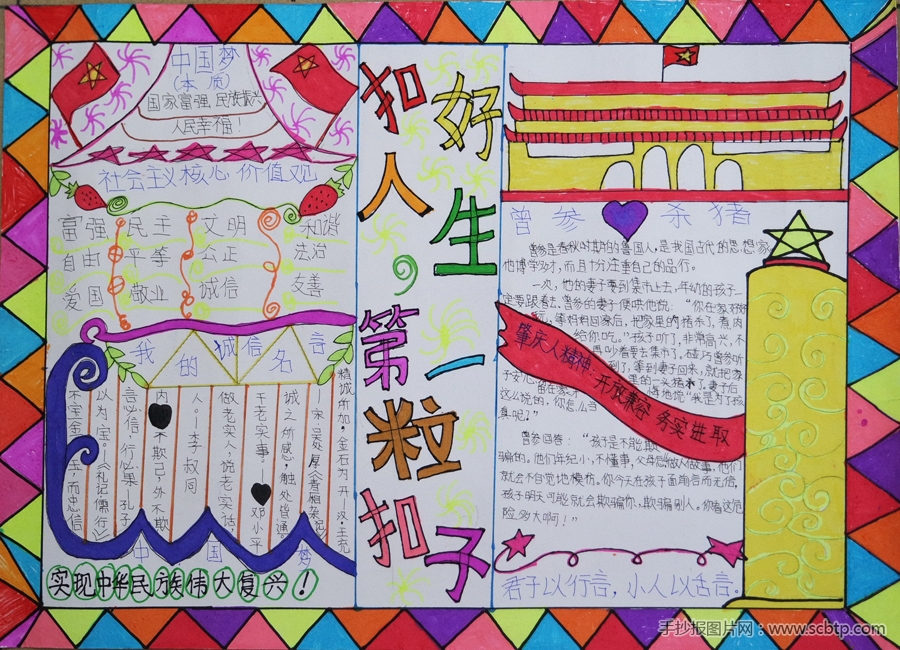 中国梦
（本质）
国家富强 民族振兴
人民幸福！
社会主义核心价值观
富强 民主 文明 和谐
自由 平等 公正 法治
爱国 敬业 诚信 友善
我的诚信名言
精诚所加，金石为开。汉·王充
诚之所感，触处皆通。
干老实事——邓小平
做老实人，说老实话，
人。——李叔同
内不欺己，外不欺
言必信，行必果—孔子
以为宝。——《礼记儒行》
不宝金玉，而忠信
中国梦
实现中华民族伟大复兴！
扣好人生，第一粒扣子
曾参杀猪
曾参是春秋时期的鲁国人，是我国古代的思想家，
他博学多才，而且十分注重自己的品行。
一次，他的妻子要到集市上去，年幼的孩子一
定要跟着去，曾参的妻子便哄他说：“你在家好好
等妈妈回家后，把家里的猪杀了，煮肉
给你吃。”孩子听了，非常高兴，不
再吵着要去集市了。
肇庆人精神：开放兼容 务实进取
这么说的，你怎么当
真呢？”
曾参回答：“孩子是不能欺
骗的。他们年纪小，不懂事，
就会不自觉地模仿。你今天在孩子面前言而无信，
孩子明天可能就会欺骗你、欺骗别人。你看这危
险多大啊！”
君子以行言，小人以舌言。
手抄报图片网：www.scbtp.com